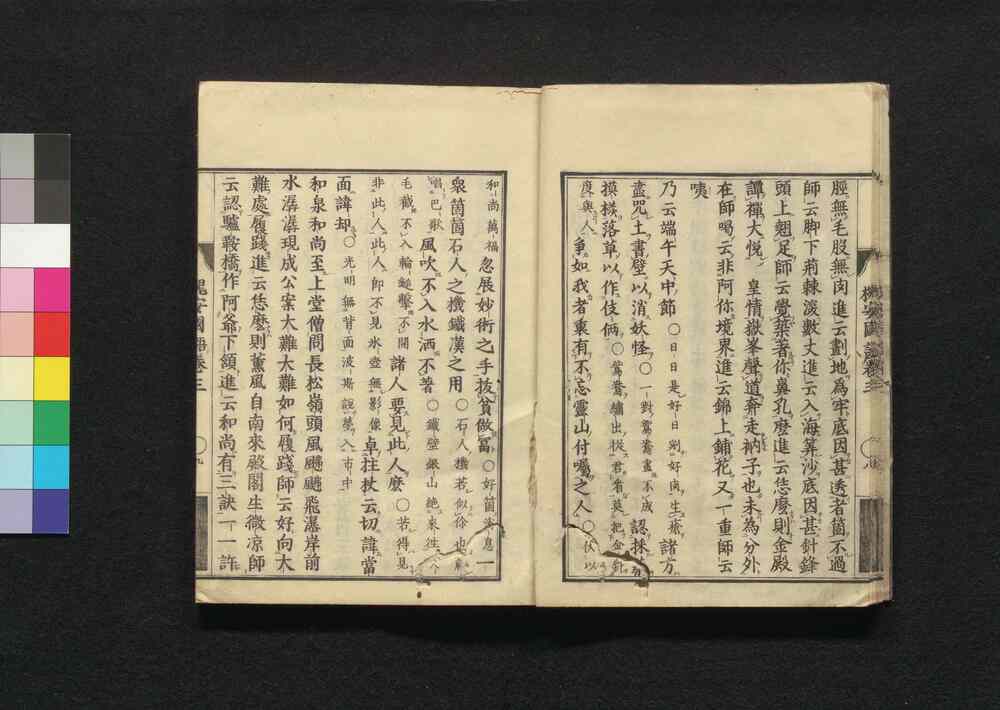 脛無毛股無肉進云劃地爲牢底因甚透者箇不過
師云脚下荊棘深數丈進云入海筭沙底因甚針鋒
頭上翹足師云覺藥著你鼻孔麼進云恁麼則金殿
譚禪大悦 皇情嶽峯聲道奔走衲子也未為分外
在師喝云非阿你境界進云錦上鋪花又一重師云
咦
乃云端午天中節○日日是好日剜好肉生瘡諸方
盡咒土書壁以消妖怪○一對鴛鴦畫不成認採
摸揉落草以作伎倆○鴛鴦繡出從君看莫把金針
度與人爭如我者裏有不忘靈山付囑之人○伏以
和尚萬福忽展妙術之手拔貧做冨○好箇消息一
衆箇箇石人之機鐵漢之用○石人機若似你也
唱巴歌風吹不入水洒不著○鐵壁銀山絶來往
毛截不入輪鎚擊不開諸人要見此人麼○若得見
非此人此人卽不見氷壺無影像卓柱杖云切諱當
面諱却○光明無背面波斯入市中
和泉和尚至上堂僧問長松嶺頭風飈飈飛瀑岸前
水潺潺現成公案大難大難如何履踐師云好向大
難處履踐進云恁麼則薫風自南來殿閣生微凉師
云認驢鞍橋作阿爺下頷進云和尚有三訣一一許
槐安國語卷三